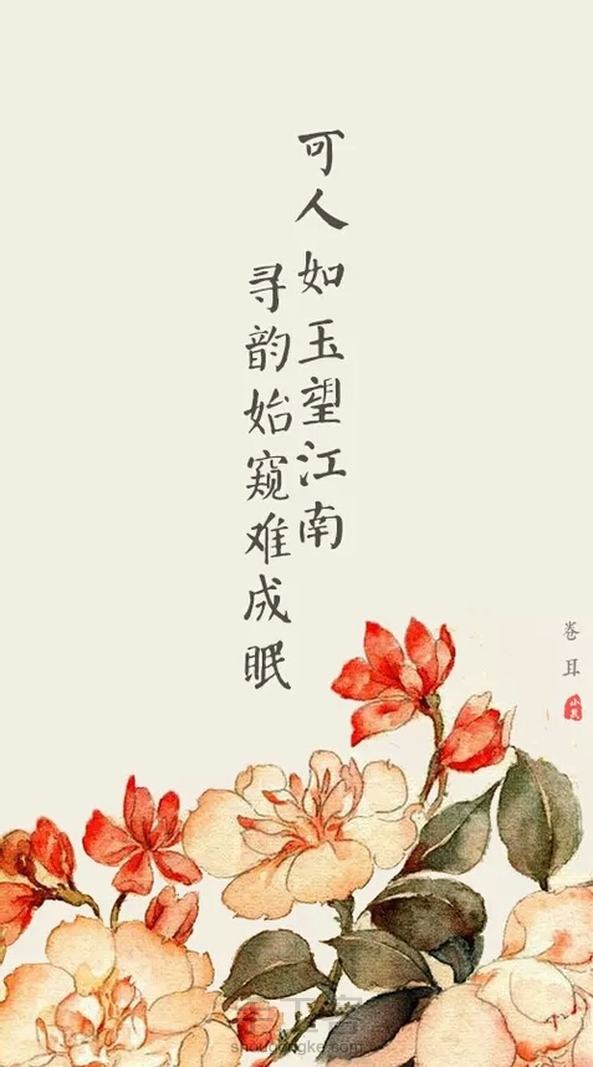 可人如玉望江南
寻韵始窥难成眠
卷耳
shougongke.com